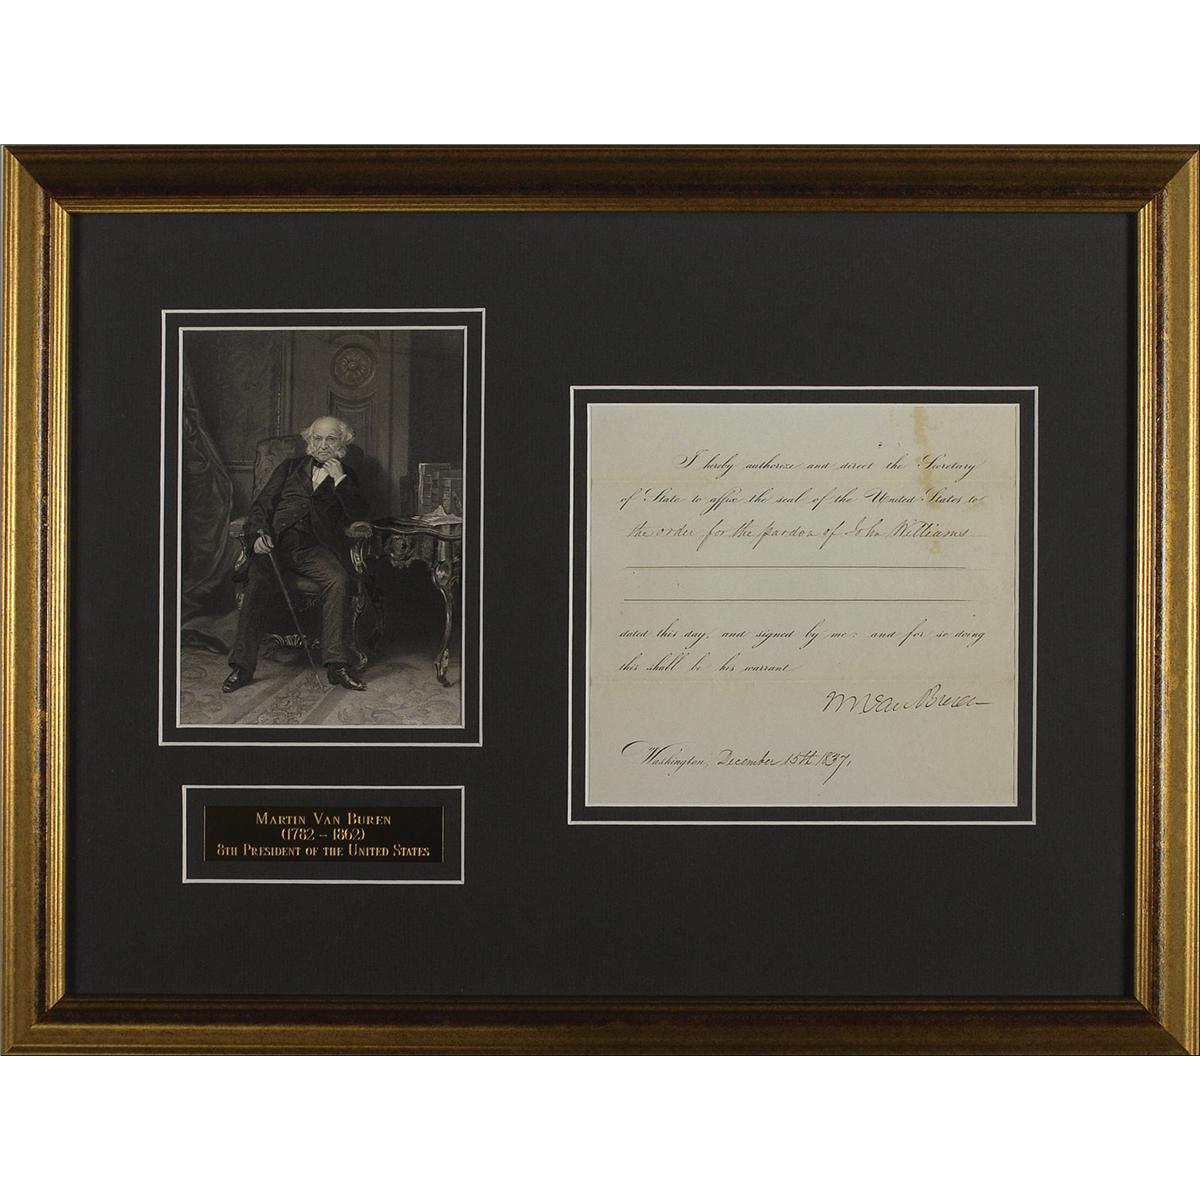 I hereby authorize and direct the Secretary
of State to affix the seal of the United States to
the order for the pardon of John Williams
dated this day, and signed by me: and for so doing
this shall be his warrant
M Van Buren
Washington, December 15th 1837,
Martin Van Buren
(1782 – 1862)
8th President of the United States